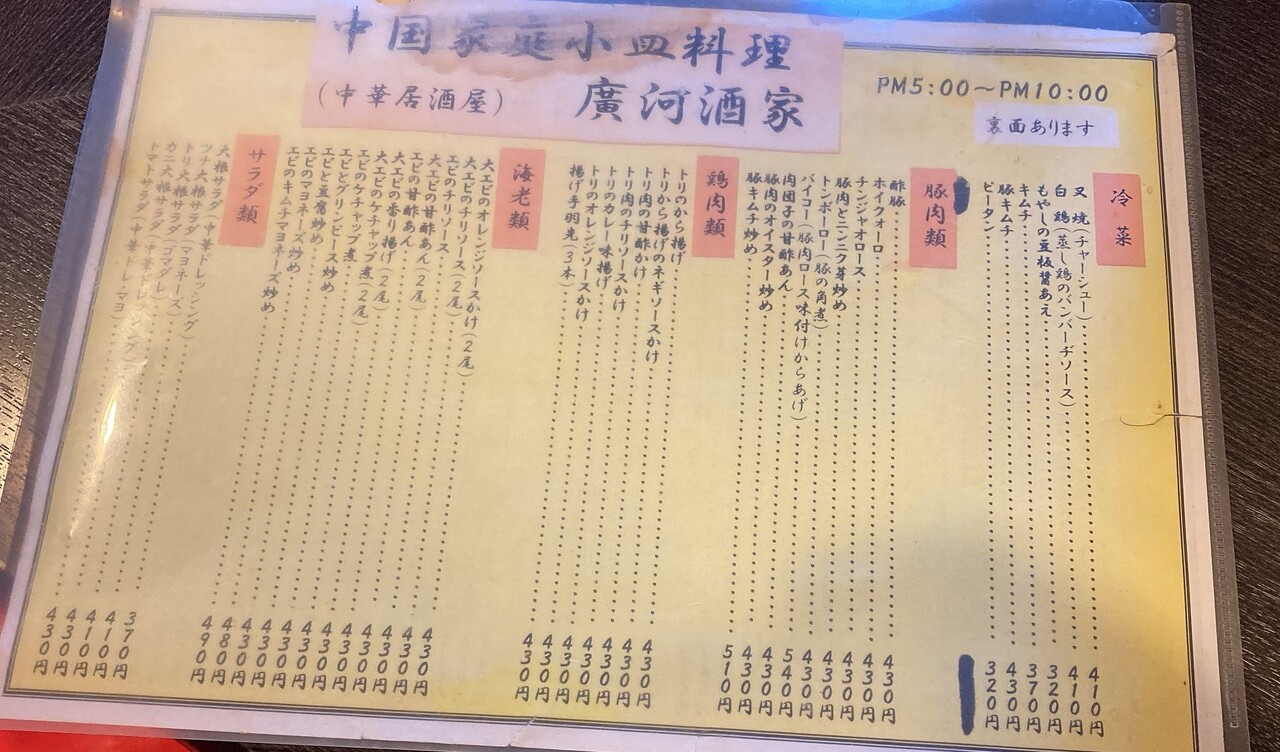 中国家庭小皿料理
(中華居酒屋) 廣河酒家
PM5:00～PM10:00
裏面あります
冷菜
叉焼(チャーシュー) 410円
白鶏(蒸し鶏のバンバーヂソース) 410円
もやしの豆板醤あえ 320円
キムチ 370円
豚キムチ 430円
ピータン 320円
豚肉類
酢豚 430円
ホイクォーロ 430円
チンジャオロース 430円
豚肉とニンニク芽炒め 430円
トンポーロー(豚の角煮) 430円
パイコー(豚肉ロース味付けからあげ) 540円
肉団子の甘酢あん 430円
豚肉のオイスター炒め 430円
豚キムチ炒め 510円
鶏肉類
トリのから揚げ 430円
トリから揚げのネギソースかけ 430円
トリ肉の甘酢かけ 430円
トリ肉のチリソースかけ 430円
トリのカレー味揚げ 430円
トリのオレンジソースかけ 430円
揚げ手羽先(3本) 430円
海老類
大エビのオレンジソースかけ(2尾) 430円
大エビのチリソース(2尾) 430円
エビのチリソース 430円
大エビの甘酢あん(2尾) 430円
エビの甘酢あん 430円
大エビの香り揚げ(2尾) 430円
大エビのケチャップ煮(2尾) 430円
エビのケチャップ煮 430円
エビとグリンピース炒め 430円
エビと豆腐炒め 430円
エビのマヨネーズ炒め 480円
エビのキムチマヨネーズ炒め 490円
サラダ類
大根サラダ(中華ドレッシング) 370円
ツナ大根サラダ(マヨネース) 410円
トリ大根サラダ(ゴマダレ) 410円
カニ大根サラダ(中華ドレ・マヨ) 430円
トマトサラダ(中華ドレッシング) 430円